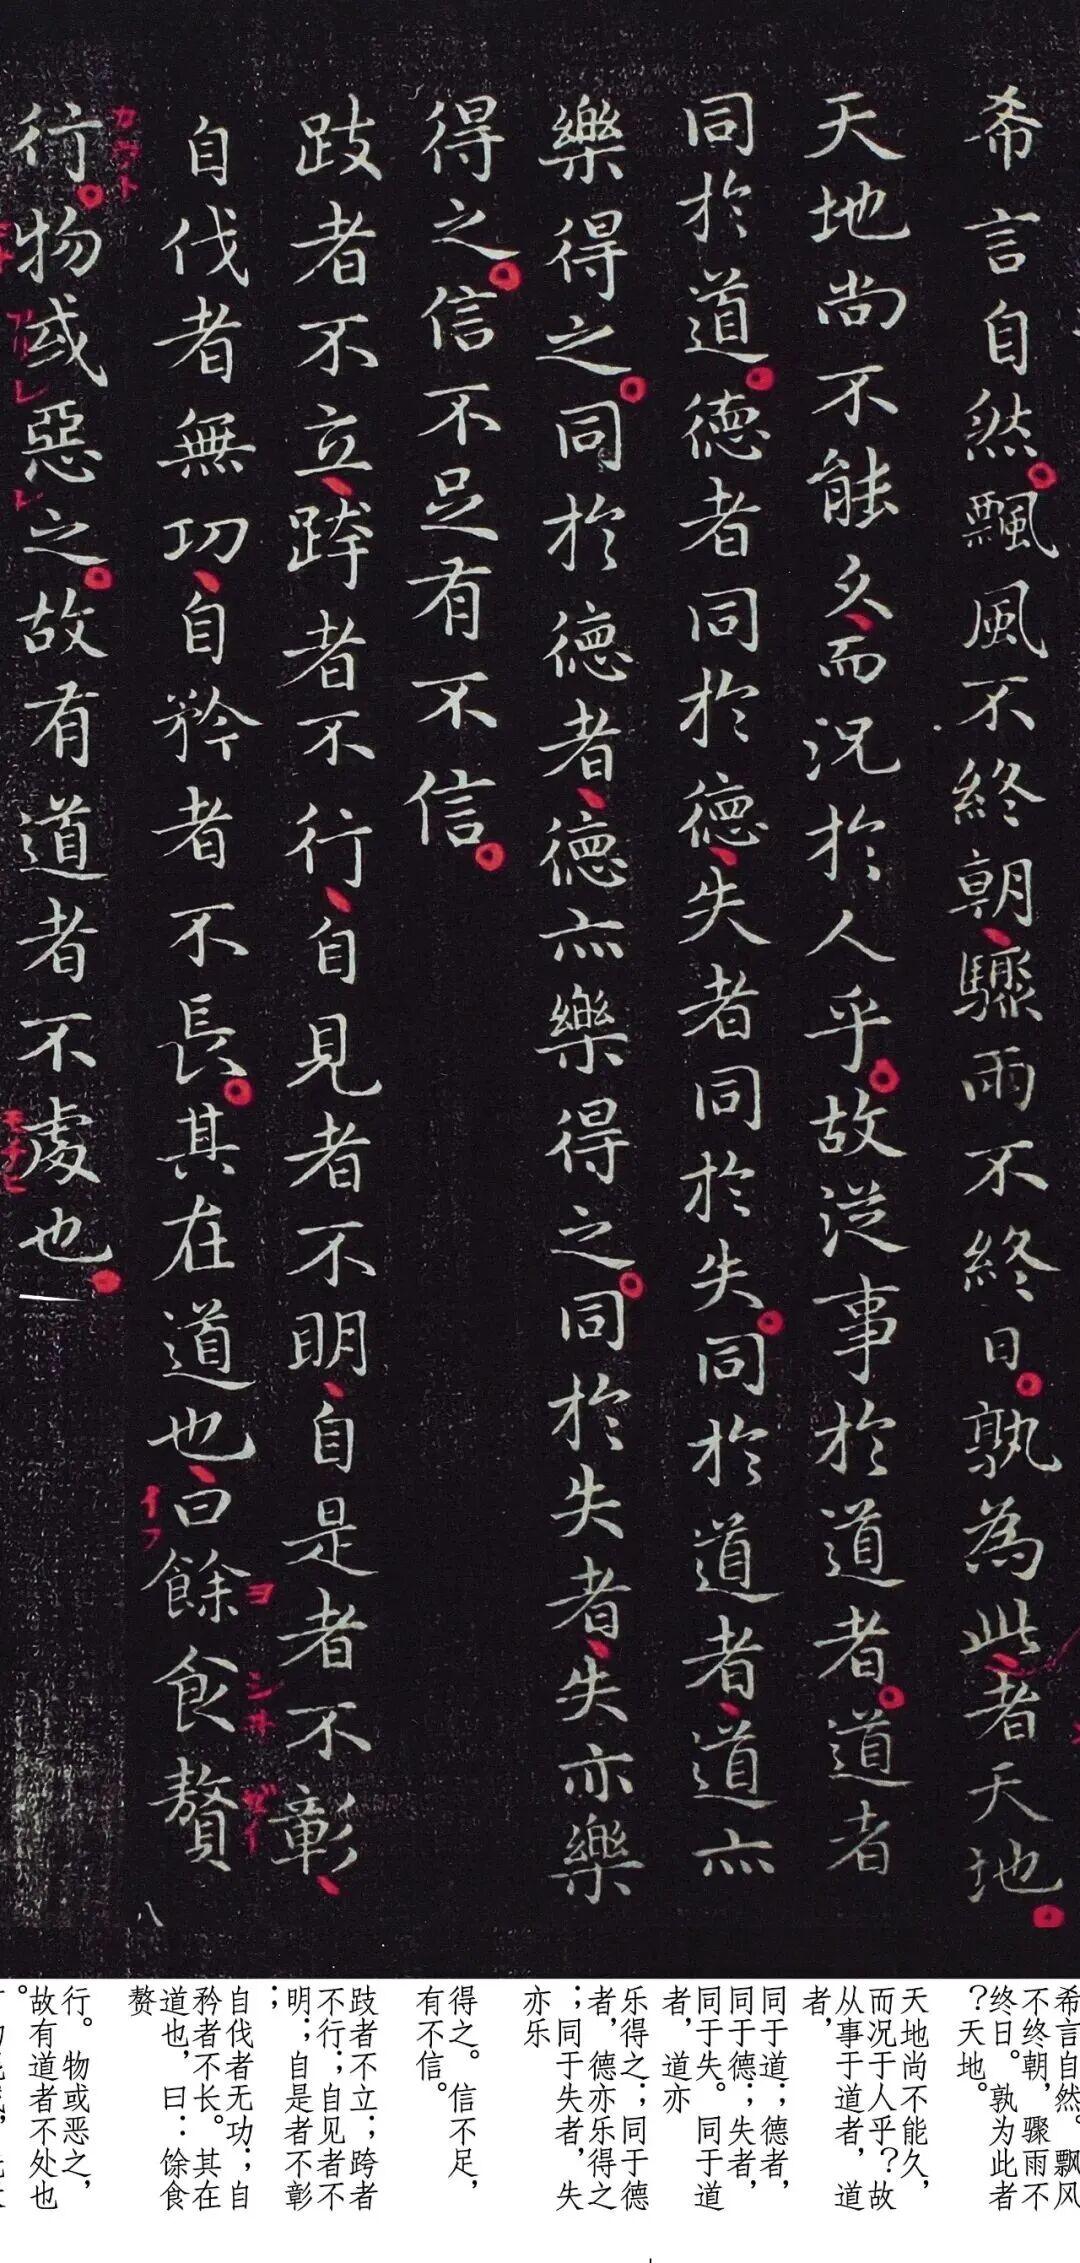 希言自然飄風不終朝驟雨不終日孰為此者天地
天地尚不能久而況於人乎故從事於道者道者
同於道德者同於德失者同於失同於道者道亦
樂得之同於德者德亦樂得之同於失者失亦樂
得之信不足有不信
跂者不立跨者不行自見者不明自是者不彰
自伐者無功自矜者不長其在道也曰餘食贅
行物或惡之故有道者不處也
イフ
ヨ
シ井
ゼイ
八
希言自然。飘风
不终朝,骤雨不
终日。孰为此者
?天地。
天地尚不能久,
而况于人乎?故
从事于道者,道
者,
同于道;德者,
同于德;失者,
同于失。同于道
者,道亦
乐得之;同于德
者,德亦乐得之
;同于失者,失
亦乐
得之。信不足,
有不信。
跂者不立;跨者
不行;自见者不
明;自是者不彰
;
自伐者无功;自
矜者不长。其在
道也,曰:馀食
赘
行。物或恶之,
故有道者不处也
。